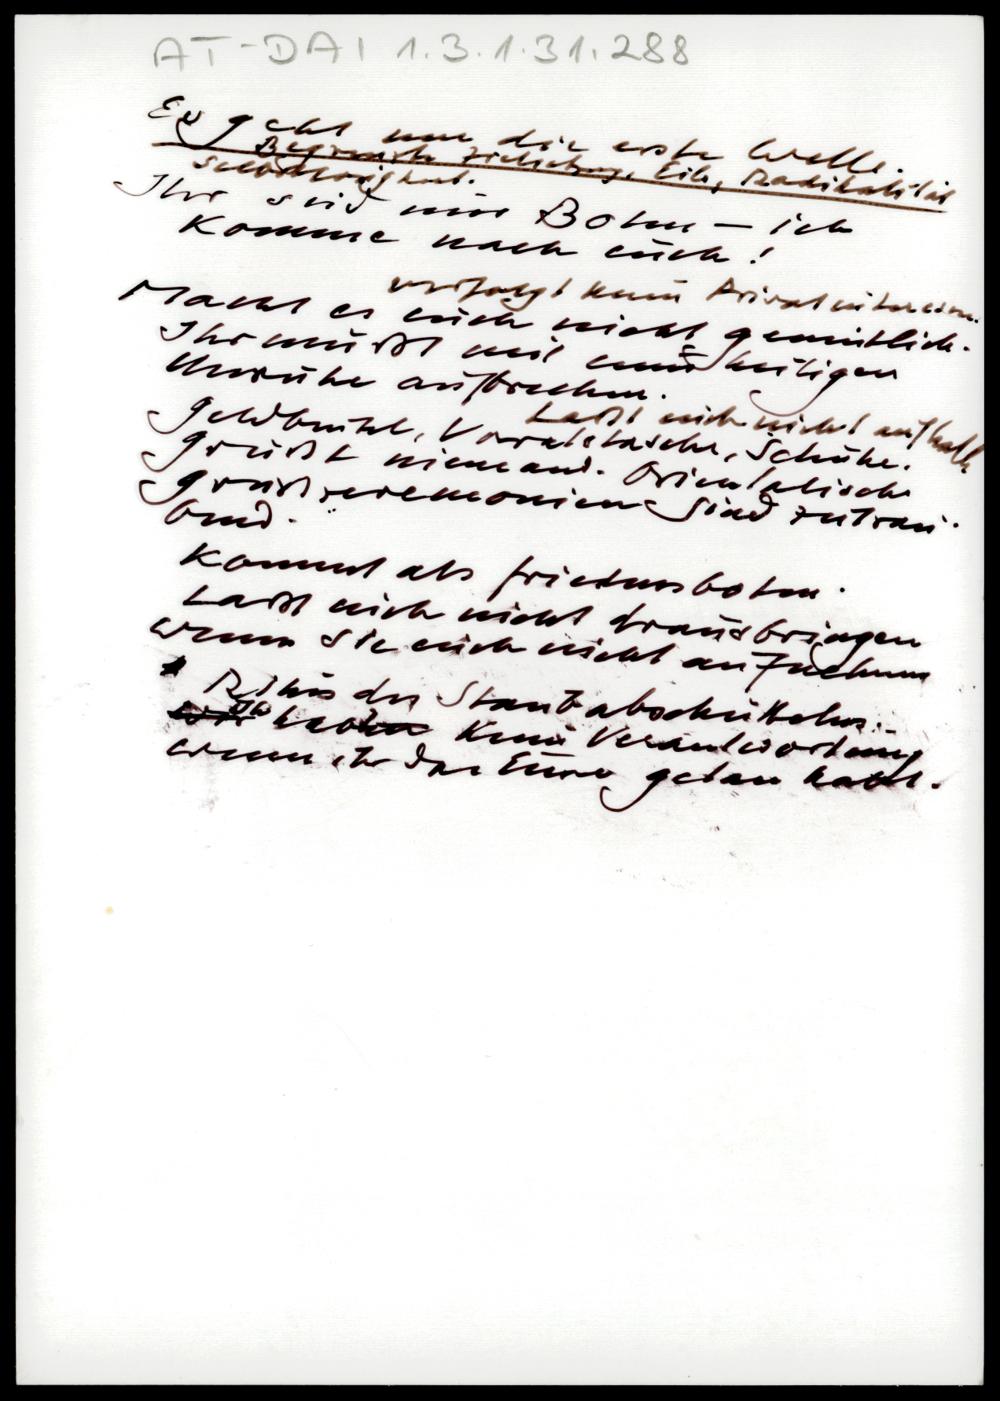 AT-DAI 1.3.1.31.288
Es geht um die erste Welle.
Begrenzte Zielsetzung, Eile, Radikalität
Ihr seid nur Boten – ich
komme nach euch!
verfolgt keine Privatinteressen.
Macht es euch nicht gemütlich.
Ihr müßt mit einer heiligen
Unruhe aufbrechen.
Laßt euch nicht aufhalten
Geldbeutel, Vorratstasche, Schuhe.
Grüßt niemand. Orientalische
Grußzeremonien sind zeitrau-
bend.
Kommt als Friedensboten.
Laßt euch nicht drausbringen
wenn sie euch nicht aufnehmen
Ritus des Staubabschüttelns:
Ihr keine Verantwortung
wenn ihr das Eure getan habt.